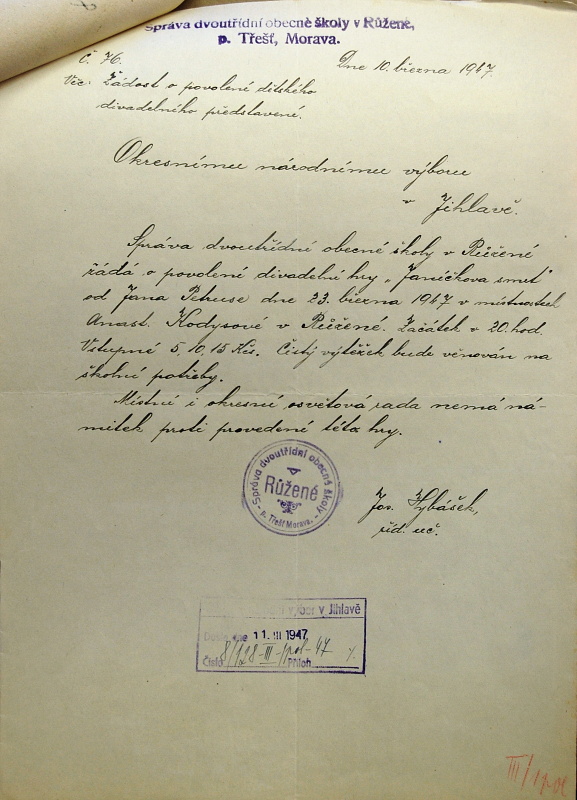 Správa dvoutřídní obecné školy v Růžené,
p. Třešť, Morava.
Č. 76.
Dne 10. března 1947.
Věc: Žádost o povolení dětského
divadelního představení.
Okresnímu národnímu výboru
v Jihlavě.
Správa dvoutřídní obecné školy v Růžené
žádá o povolení divadelní hry „Janíčkova smrt"
od Jana Petruse dne 23. března 1947 v místnostech
Anast. Kodysové v Růžené. Začátek v 20. hod.
Vstupné 5, 10, 15 Kčs. Čistý výtěžek bude věnován na
školní potřeby.
Místní i okresní osvětová rada nemá ná-
mitek proti provedení této hry.
Správa dvoutřídní obecné školy
Růžené
p. Třešť Morava.
Jos. Hybášek,
říd. uč.
výbor v Jihlavě
Došlo dne 11. III 1947
Číslo 8/128-III-/pol-47 Příloh
III/1 pol